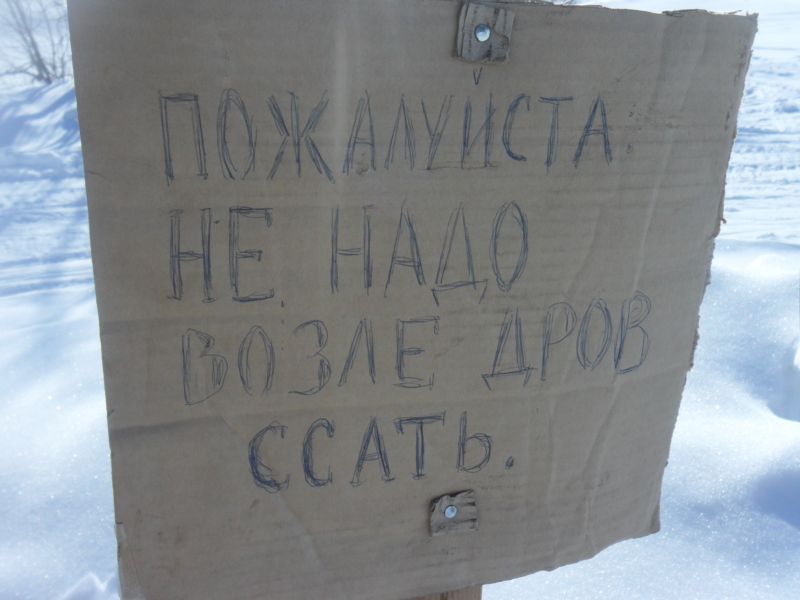 ПОЖАЛУЙСТА.
НЕ НАДО
ВОЗЛЕ ДРОВ
ССАТЬ.